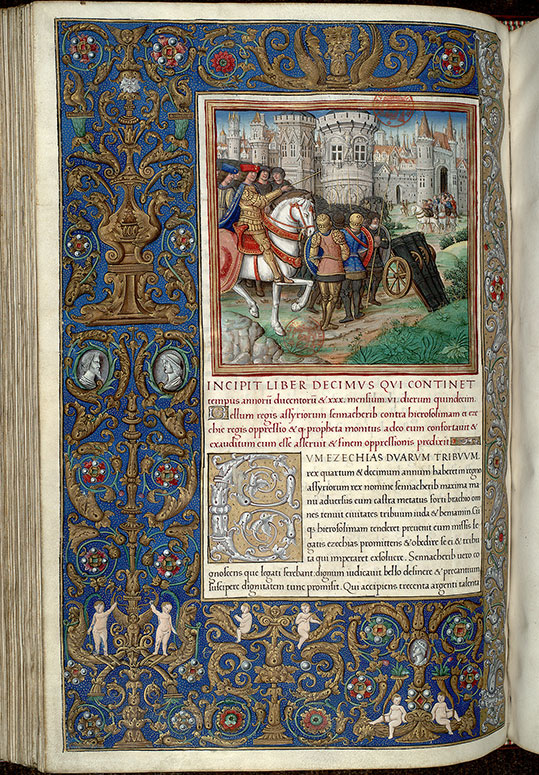 INCIPIT LIBER DECIMVS QVI CONTINET
tempus annorū ducentorū & xxx. mensium .VI. dierum quindecim.
Bellum regis assyriorum sennacherib contra hierosolimam et eze
chie regis oppressio & q propheta monitus a deo eum confortauit &
exauditum eum esse asseruit & finem oppressionis predixit
CVM EZECHIAS DVARVM TRIBVVM
rex quartum & decimum annum haberet in regno
assyriorum rex nomine sennacherib maxima
manu aduersus eum castra metatus forti brachio om
nes tenuit ciuitates tribuum iuda & beniamin. Cū
qs hierosolimam tenderet preuenit eum missis le
gatis ezechias promittens & obedire se ei & tribu
ta qui imperaret exsoluere. Sennacherib uero co
gnoscens que legati ferebant dignum iudicauit bello desinere & precantium
suscipere dignitatem tunc promisit. Qui accipiens trecenta argenti talenta